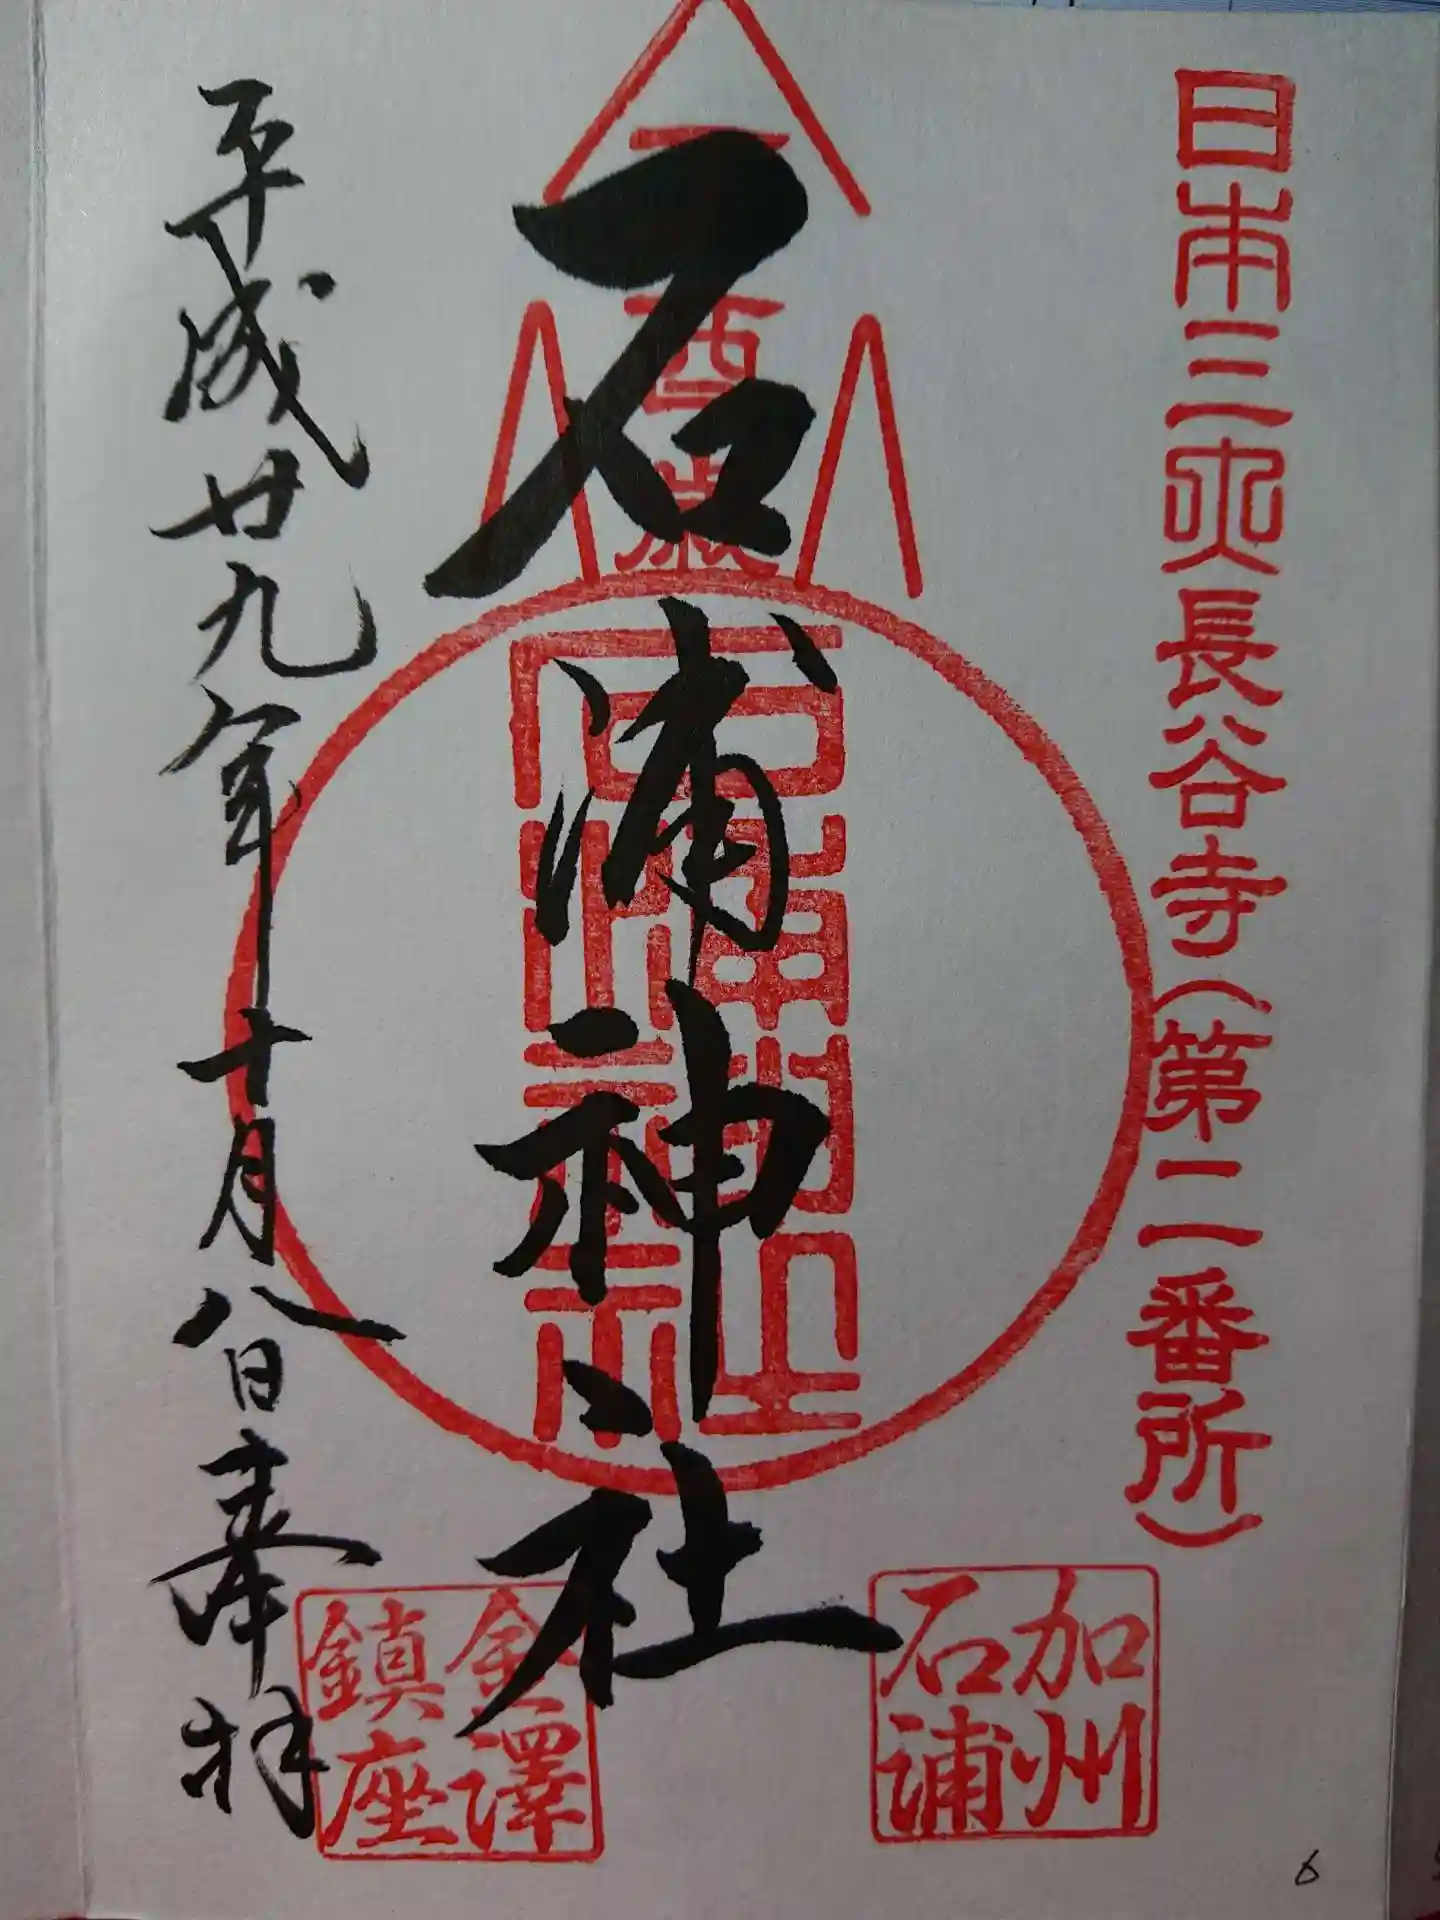 日本三大長谷寺(第二番所)
加州
石浦
二千
百
歳
石浦神社
金澤
鎮座
平成廿九年十月八日奉拝
6